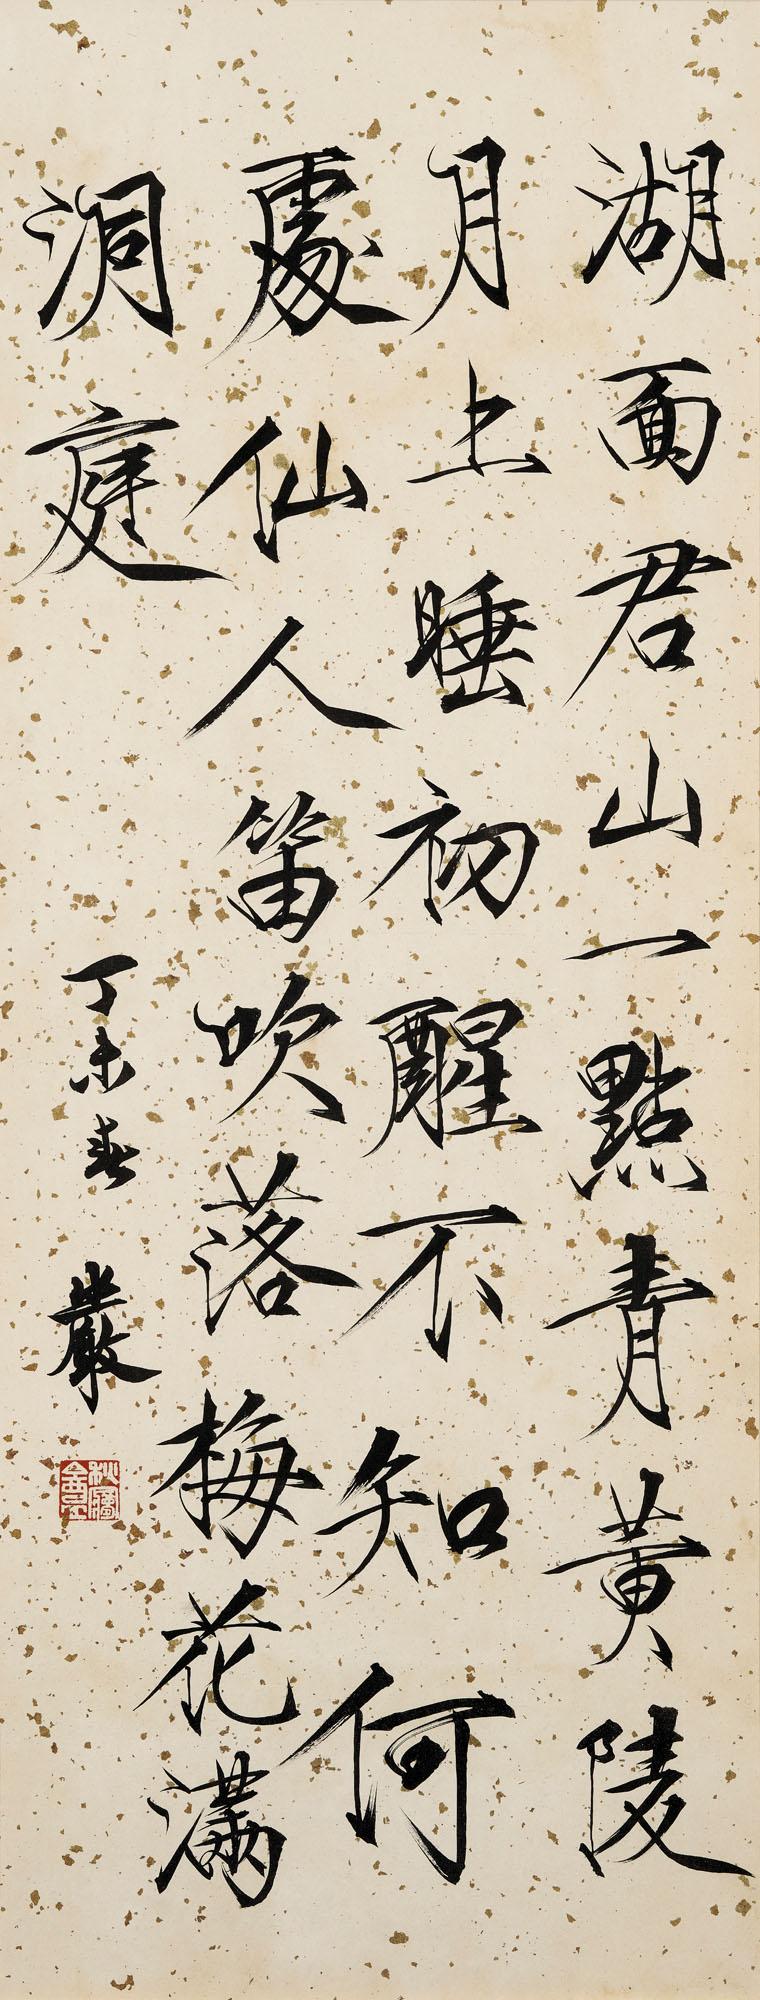 湖面君山一點青黃陵
月上睡初醒不知何
處仙人笛吹落梅花滿
洞庭
丁未春
莊嚴